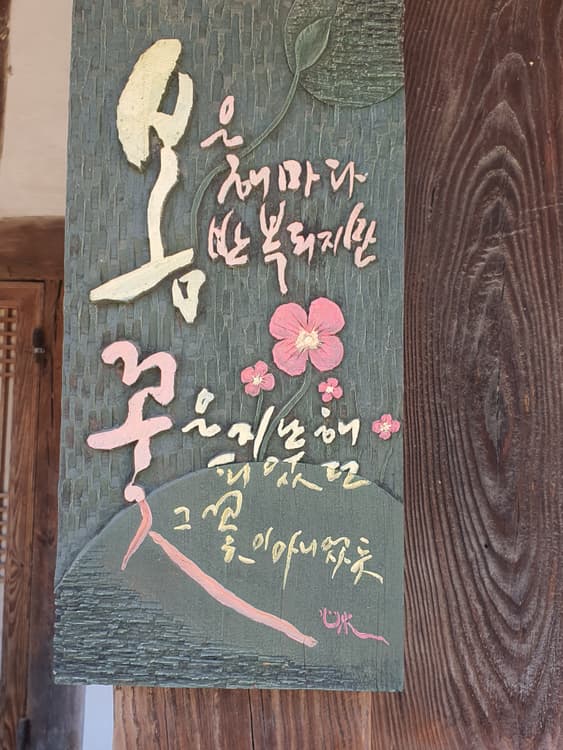 봄은
해마다
반복되지만
꽃은 지난해
피었던
그 꽃이 아니었듯